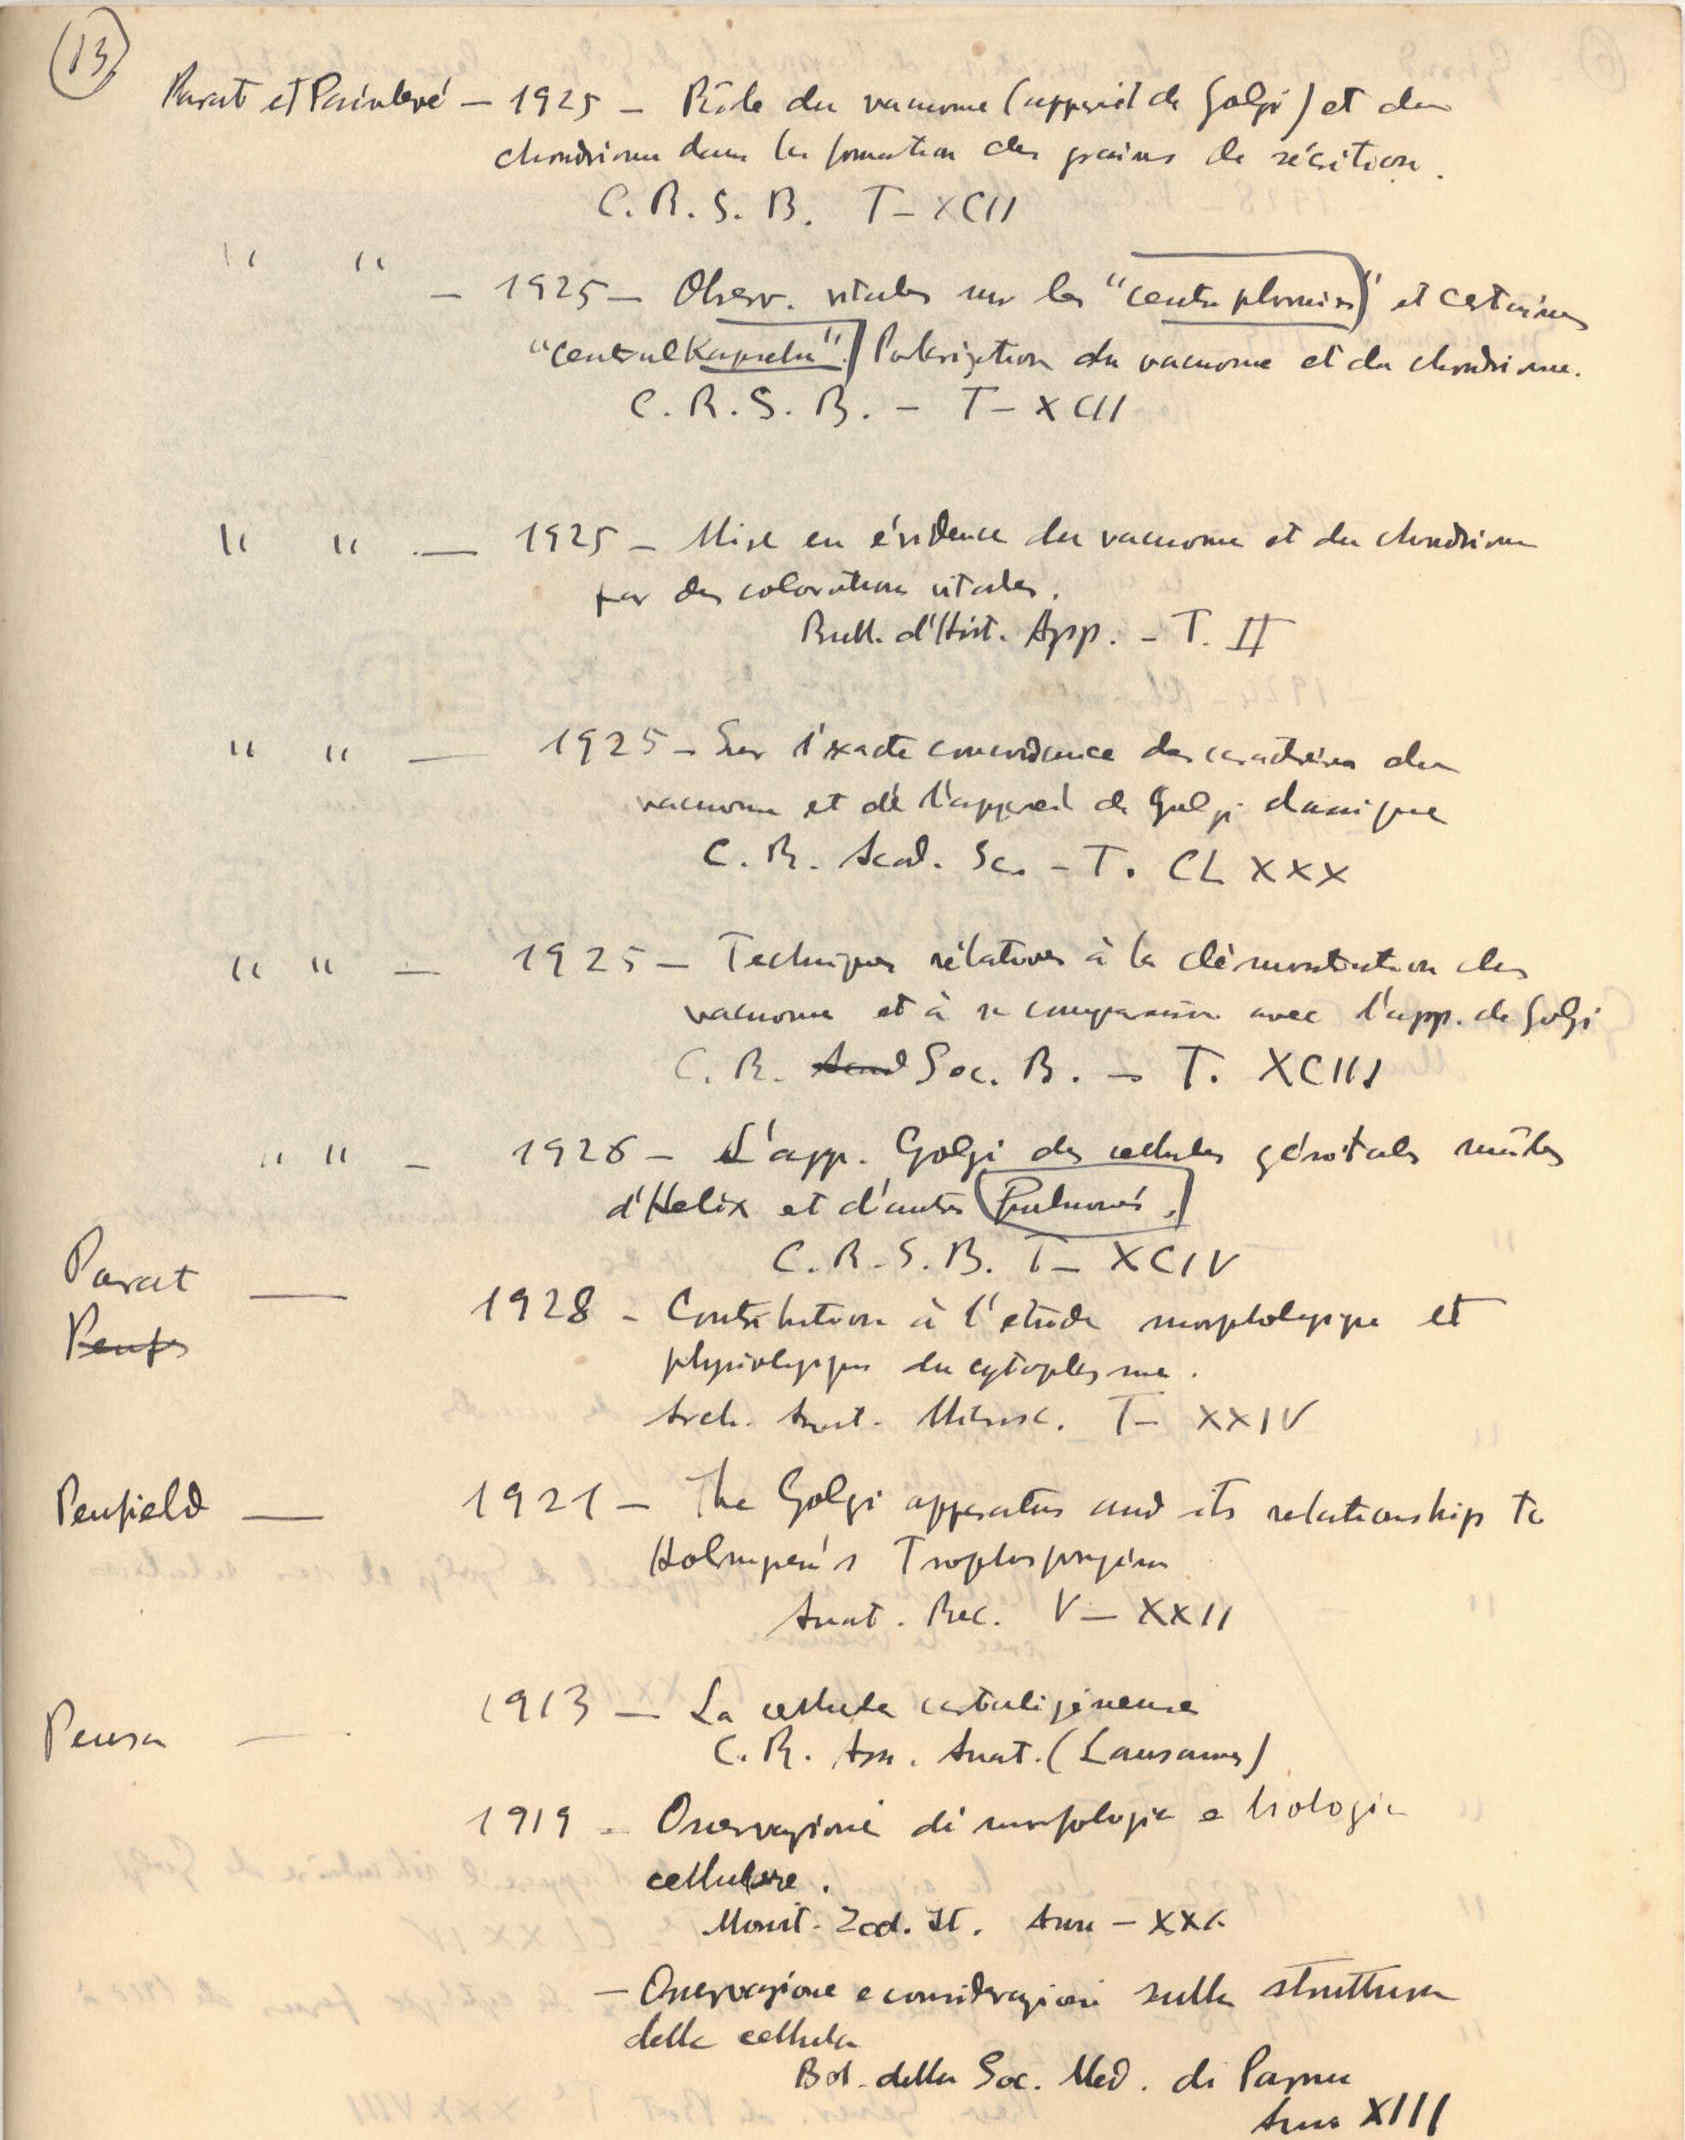 13
Parat et Painlevé — 1925 — Rôle du vacuome (appareil de Golgi) et du
chondriome dans la formation des grains de sécrétion.
C. R. S. B. T — XCII
" " — 1925 — Observ. vitales sur les "centres phormies" et certaines
"centralkapseln". Polarization du vacuome et du chondriome.
C. R. S. B. — T — XCII
" " — 1925 — Mise en évidence du vacuome et du chondriome
par des colorations vitales.
Bull. d'Hist. App. — T. II
" " — 1925 — Sur l'exacte concordance des caractères du
vacuome et de l'appareil de Golgi classique
C. R. Acad. Sc. — T. CLXXX
" " — 1925 — Techniques rélatives à la démonstration des
vacuome et à sa comparaison avec l'app. de Golgi
C. R. Acad Soc. B. — T. XCIII
" " — 1926 — L'app. Golgi des cellules génitales mâles
d'Helix et d'autres Pulmonés.
C. R. S. B. T — XCIV
Parat — 1928 — Contribution à l'étude morphologique et
Penf
physiologique du cytoplasme.
Arch. Anat. Microsc. T — XXIV
Penfield — 1921 — The Golgi apparatus and its relationship to
Holmgren's Trophospongium
Anat. Rec. V — XXII
Pensa — 1913 — La cellule cartiligineuse
C. R. Ass. Anat. (Lausanne)
1919 — Osservazioni di morfologia e biologia
cellulare.
Monit. Zool. It. Ann — XXX
— Osservazione e considerazioni sulla struttura
della cellula
Bol. della Soc. Med. di Parma
Anno XIII